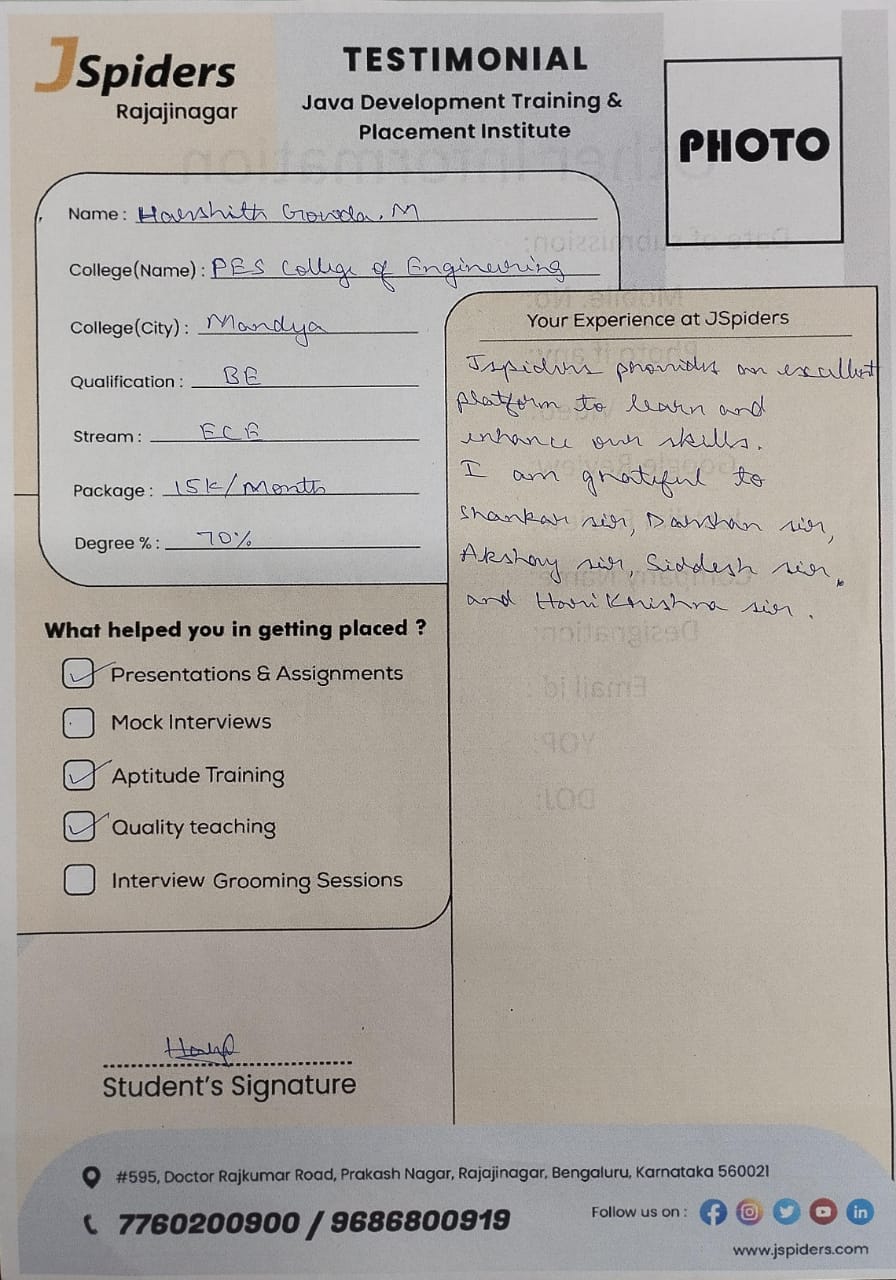 JSpiders
Rajajinagar
TESTIMONIAL
Java Development Training &
Placement Institute
PHOTO
Name : Harshith Gowda. M
College(Name) : PES College of Engineering
College(City) : Mandya
Qualification : BE
Stream : ECE
Package : 15k/Month
Degree % : 70%
Your Experience at JSpiders
Jspiders provides an excellent
platform to learn and
enhance our skills.
I am grateful to
Shankar sir, Darshan sir,
Akshay sir, Siddesh sir,
and Hari Krishna sir .
What helped you in getting placed ?
Presentations & Assignments
Mock Interviews
Aptitude Training
Quality teaching
Interview Grooming Sessions
Student's Signature
#595, Doctor Rajkumar Road, Prakash Nagar, Rajajinagar, Bengaluru, Karnataka 560021
7760200900 / 9686800919
Follow us on :
www.jspiders.com